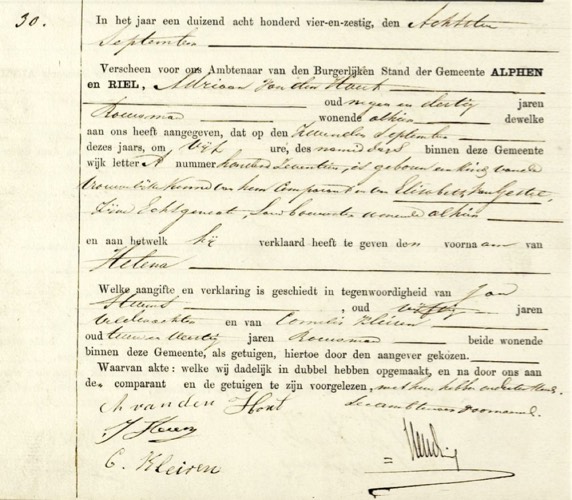 30.
In het jaar een duizend acht honderd vier-en-zestig, den Achtsten
September
Verscheen voor ons Ambtenaar van den Burgerlijken Stand der Gemeente ALPHEN
en RIEL, Adriaan van den Hout
oud negen en dertig jaren
Bouwman wonende alhier dewelke
aan ons heeft aangegeven, dat op den Zevenden September
dezes jaars, om vijf ure, des namiddags binnen deze Gemeente
wijk letter A nummer honderd Zeventien, is geboren een kind van de
vrouwelijke Kunne van hem Comparant en van Elisabeth van Gestel,
Zijne Echtgenoot, Landbouwster wonende alhier
en aan hetwelk hij verklaard heeft te geven den voornaam van
Helena
Welke aangifte en verklaring is geschiedt in tegenwoordigheid van Jan
, oud vijftig jaren
Veldwachter en van Cornelis Kleiren
oud jaren Bouwman beide wonende
binnen deze Gemeente, als getuigen, hiertoe door den aangever gekozen.
Waarvan akte: welke wij dadelijk in dubbel hebben opgemaakt, en na door ons aan
de comparant en de getuigen te zijn voorgelezen, met hen hebben onderteekend.
A van den Hout de ambtenaar voornoemd.
C. Kleiren